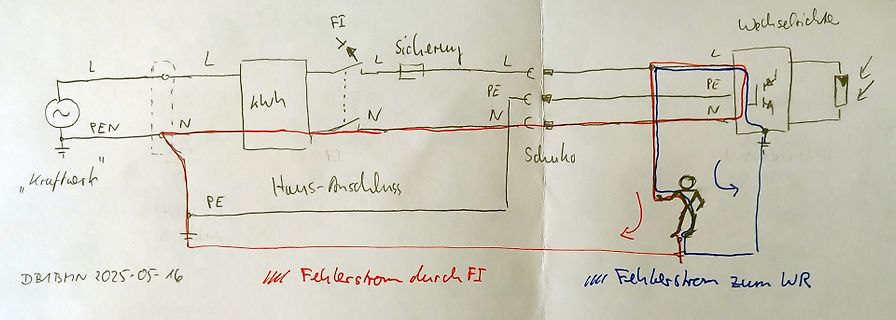 FI
Wechselrichter
L
L
L
Sicherung
L
L
kWh
PE
PE
PEN
N
N
N
N
"Kraftwerk"
FI
Schuko
Haus-Anschluss
PE
DB1BMN 2025-05-16
Fehlerstrom durch FI
Fehlerstrom zum WR